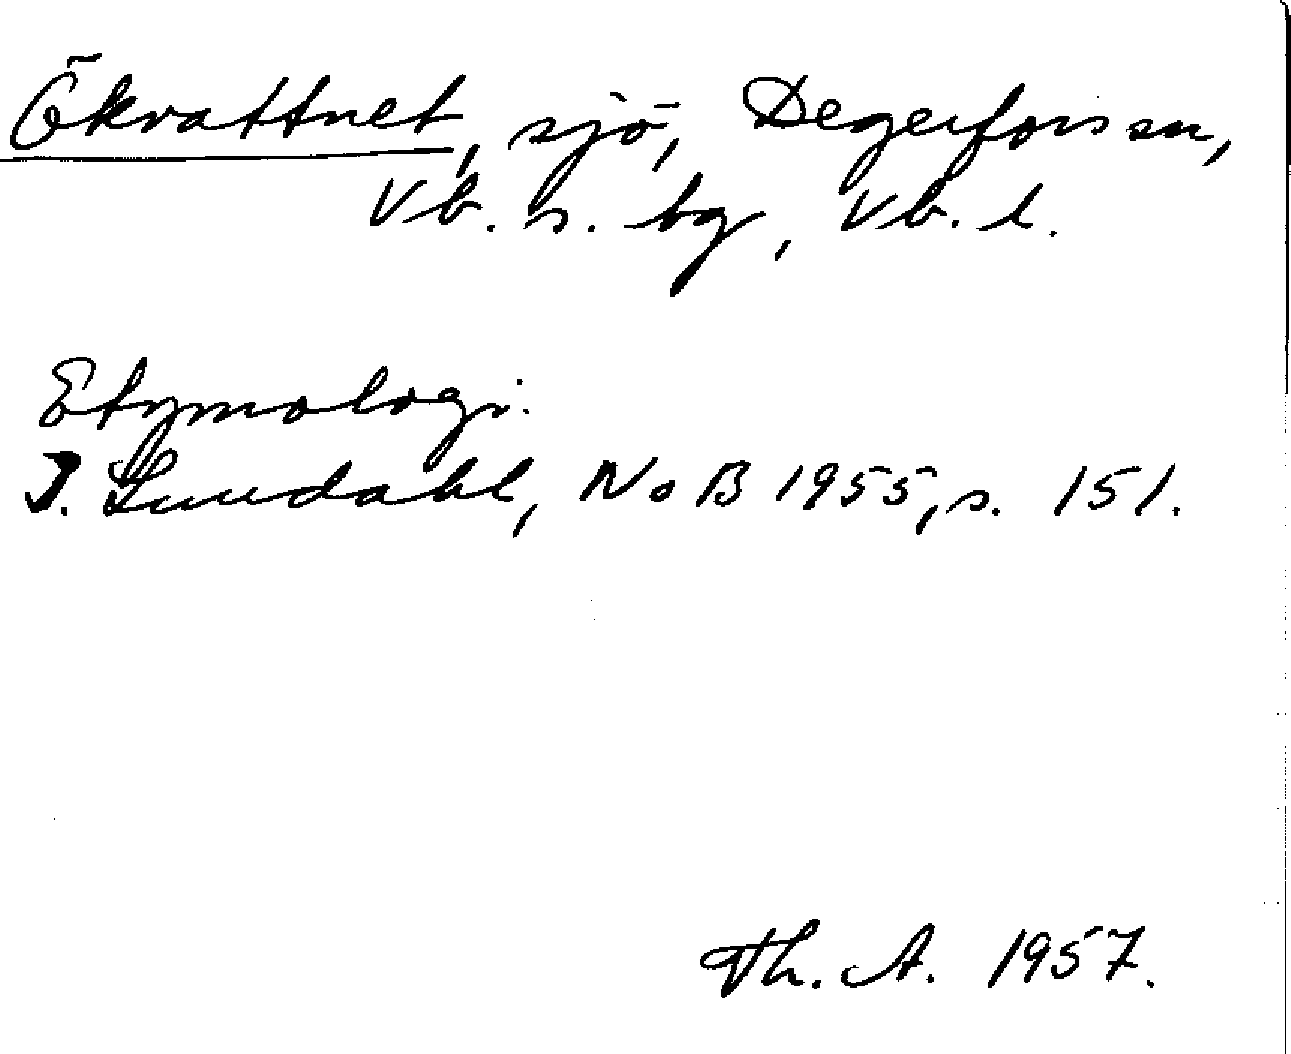 Ökvattnet, sjö, Degerfors sn,
Vb. s. bg, Vb. l.
Etymologi:
I. Lundahl, NoB 1955, s. 151.
Th. A. 1957.